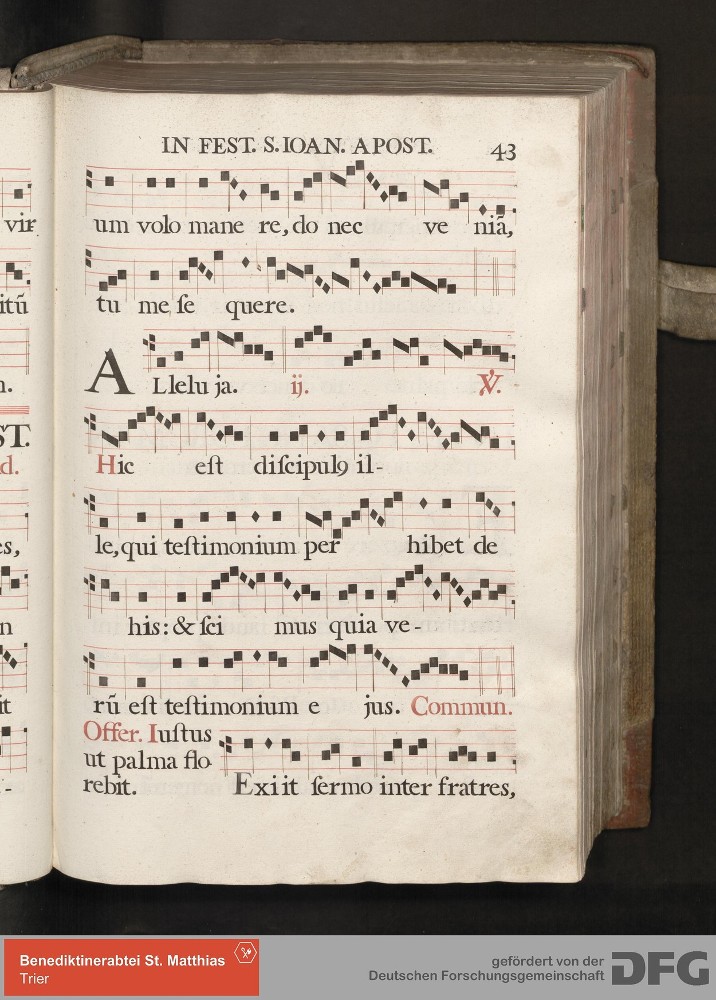 IN FEST. S. IOAN. APOST. 43
um volo mane re, do nec ve niã,
tu me ſe quere.
A Llelu ja. ij. ℣.
Hic eſt diſcipulꝯ il-
le, qui teſtimonium per hibet de
his: & ſci mus quia ve-
rũ eſt teſtimonium e jus. Commun.
Offer. Iuſtus
ut palma flo
rebit. Exiit ſermo inter fratres,
vir
itũ
n.
ST.
d.
es,
n
it
-
Benediktinerabtei St. Matthias
Trier
gefördert von der
Deutschen Forschungsgemeinschaft DFG